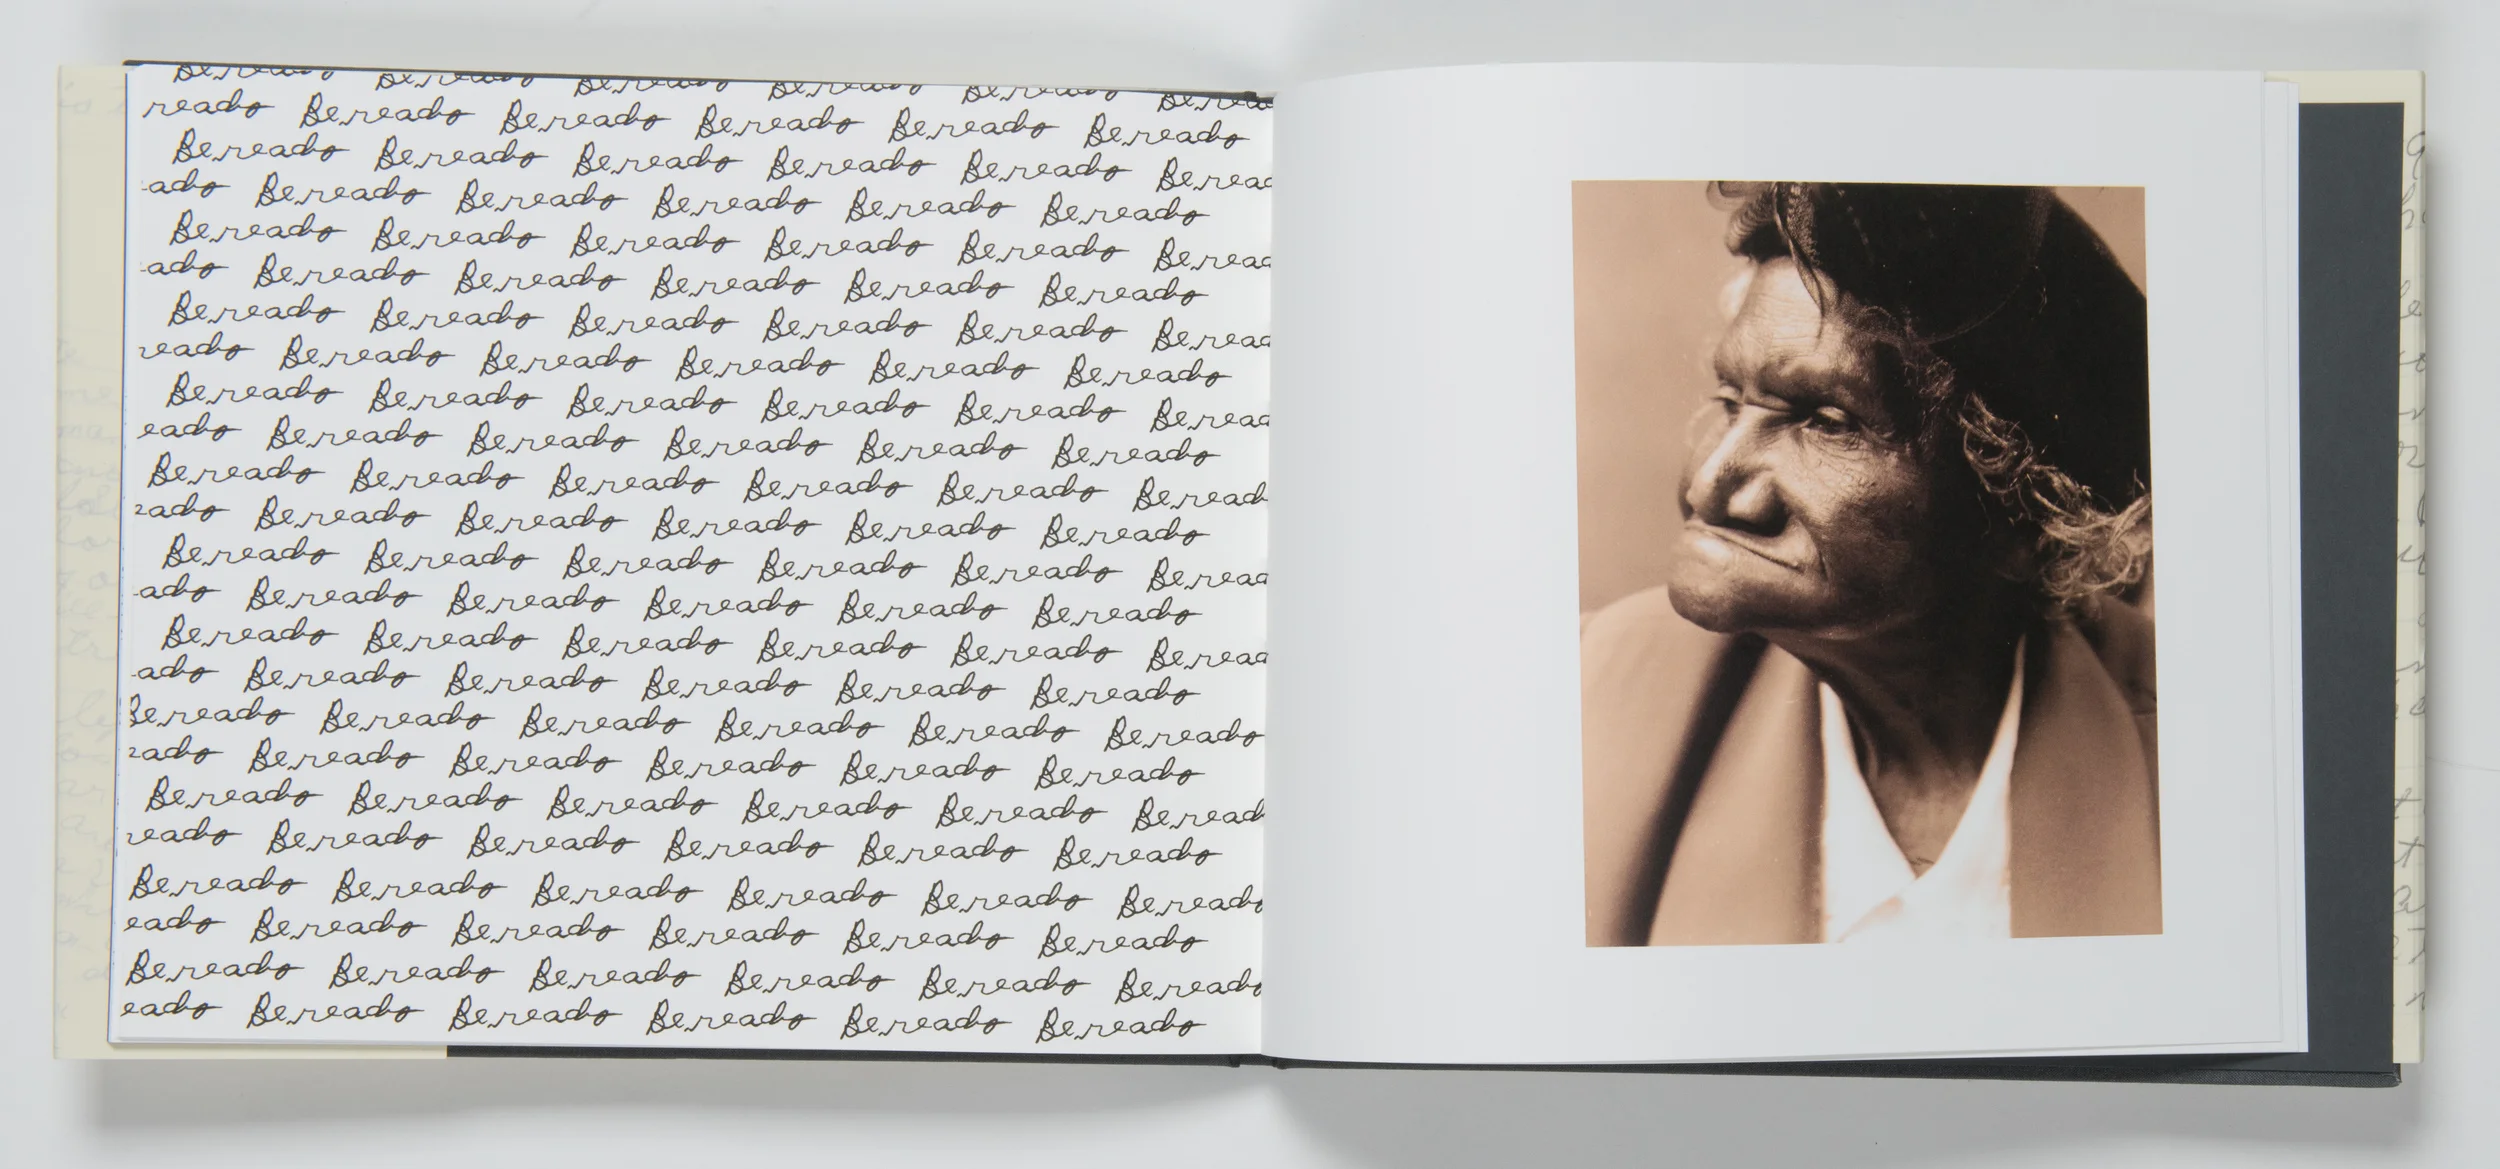 Bereado Bereado Bereado Bereado Bereado Berea
reado Bereado Bereado Bereado Bereado Bereado
Bereado Bereado Bereado Bereado Bereado Berea
ado Bereado Bereado Bereado Bereado Bereado
Bereado Bereado Bereado Bereado Bereado Berea
ado Bereado Bereado Bereado Bereado Bereado
Bereado Bereado Bereado Bereado Bereado Berea
reado Bereado Bereado Bereado Bereado Bereado
Bereado Bereado Bereado Bereado Bereado Berea
eado Bereado Bereado Bereado Bereado Bereado
Bereado Bereado Bereado Bereado Bereado Beread
eado Bereado Bereado Bereado Bereado Bereado
Bereado Bereado Bereado Bereado Bereado Berea
ado Bereado Bereado Bereado Bereado Bereado
Bereado Bereado Bereado Bereado Bereado Berea
ado Bereado Bereado Bereado Bereado Bereado
Bereado Bereado Bereado Bereado Bereado Bereado
eado Bereado Bereado Bereado Bereado Bereado
Bereado Bereado Bereado Bereado Bereado Beread
reado Bereado Bereado Bereado Bereado Bereado
Bereado Bereado Bereado Bereado Bereado Bereado
eado Bereado Bereado Bereado Bereado Bereado
Bereado Bereado Bereado Bereado Bereado Bereado
eado Bereado Bereado Bereado Bereado Bereado